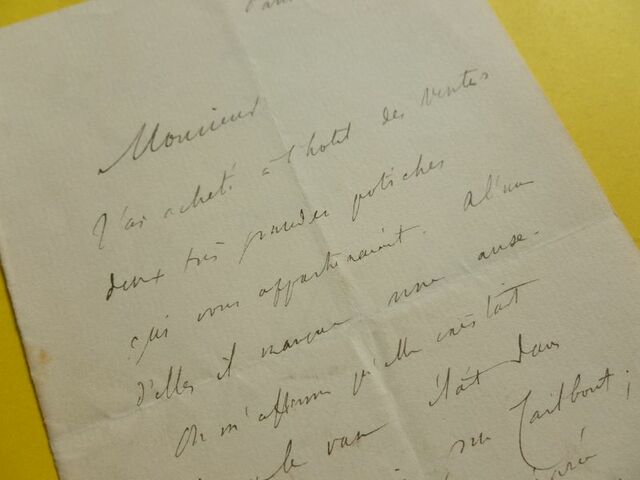 Monsieur
J'ai acheté à l'hotel des ventes
deux très grandes potiches
qui vous appartenaient. A l'une
d'elles il manque une anse.
On m'affirme qu'elle existait
le vase était dans
rue Taitbout ;